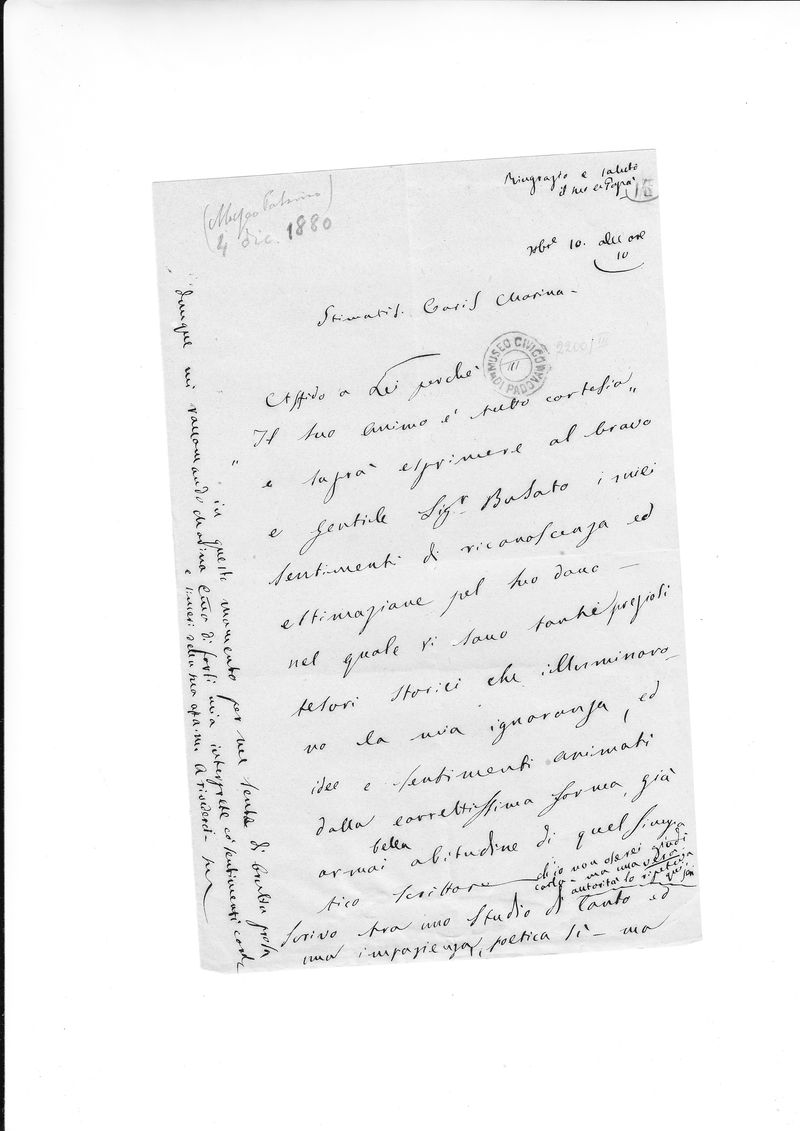 Ringrazio e saluto
il suo Papà
15
4 dic. 1880
10. alle ore
10
Stimatis. Caris Marina -
MUSEO CIVICO DI PADOVA
III
2200/III
Affido a Lei perchè
"Il suo animo è tutto cortesia"
e saprà esprimere al bravo
e gentile Sigr Busato i miei
sentimenti di riconoscenza ed
estimazione pel suo dono -
nel quale vi sono tanti preziosi
tesori storici che illuminaro-
no la mia ignoranza, ed
idee e sentimenti animati
dalla correttissima forma, già
ormai bella abitudine di quel simpa
tico scrittore
ch'io non oserei giudi
carlo - ma una vera
autorità lo ripeteva
Scrivo tra uno studio di Canto ed
una impazienza, poetica sì - ma
in questo momento per me sente di brutta prosa
dunque mi raccomando Marina di farsi mia interprete co' sentimenti
e A rivederci